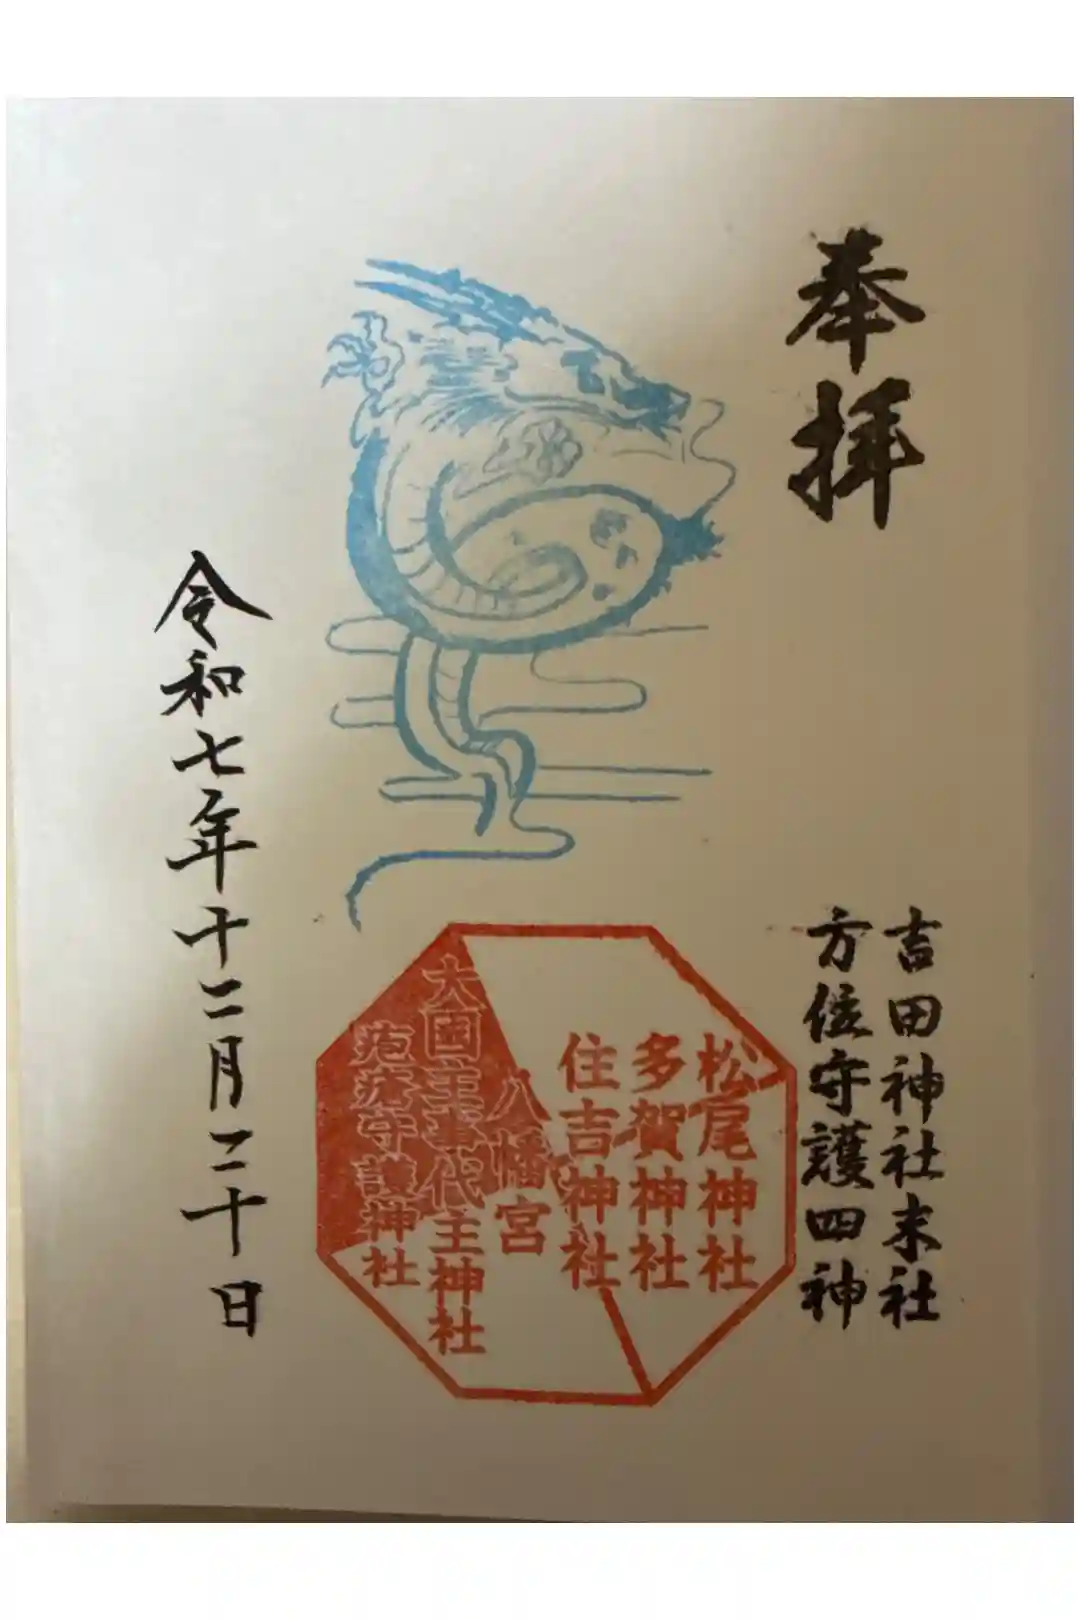 奉拝
吉田神社末社
方位守護四神
松尾神社
多賀神社
住吉神社
八幡宮
大国主事代主神社
疱瘡守護神社
令和七年十二月二十日